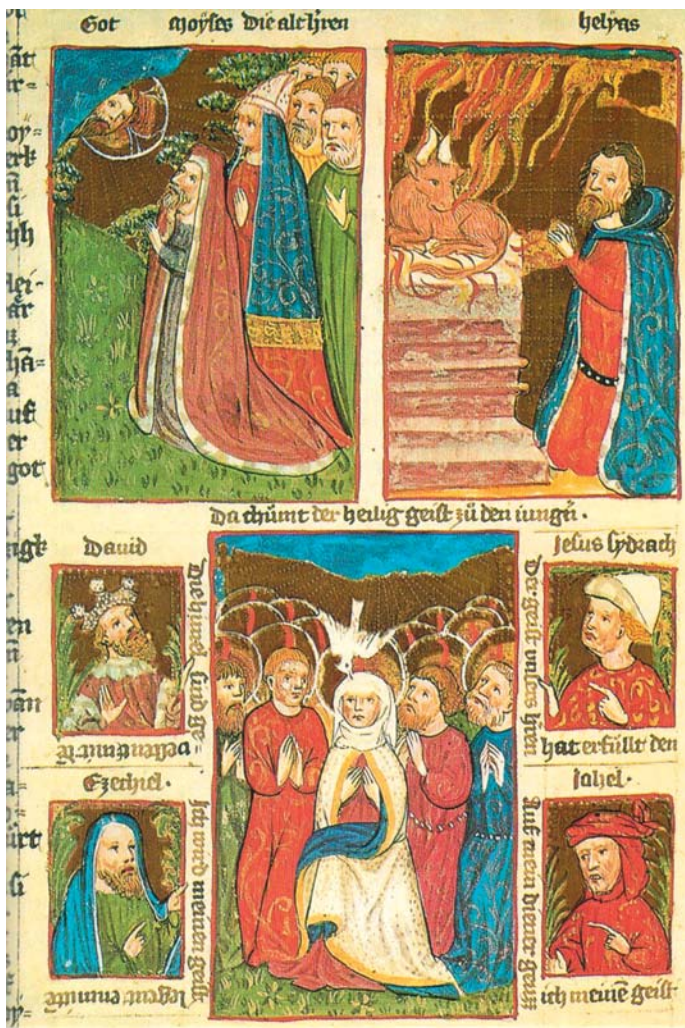 Got moyses die alt hren
helyas
oy=
si
hā=
a
uf
er
got
Da chūmt der heilig geist zū den iungē.
Dauid
Die himel sind ge=
Jesus sydrach
Der geist unsers hren
hat erfüllt den
Ezechiel.
Ich wird meinen geist
Johel.
Auf mein diener geuss
ich meinē geist
en
er
a=
si